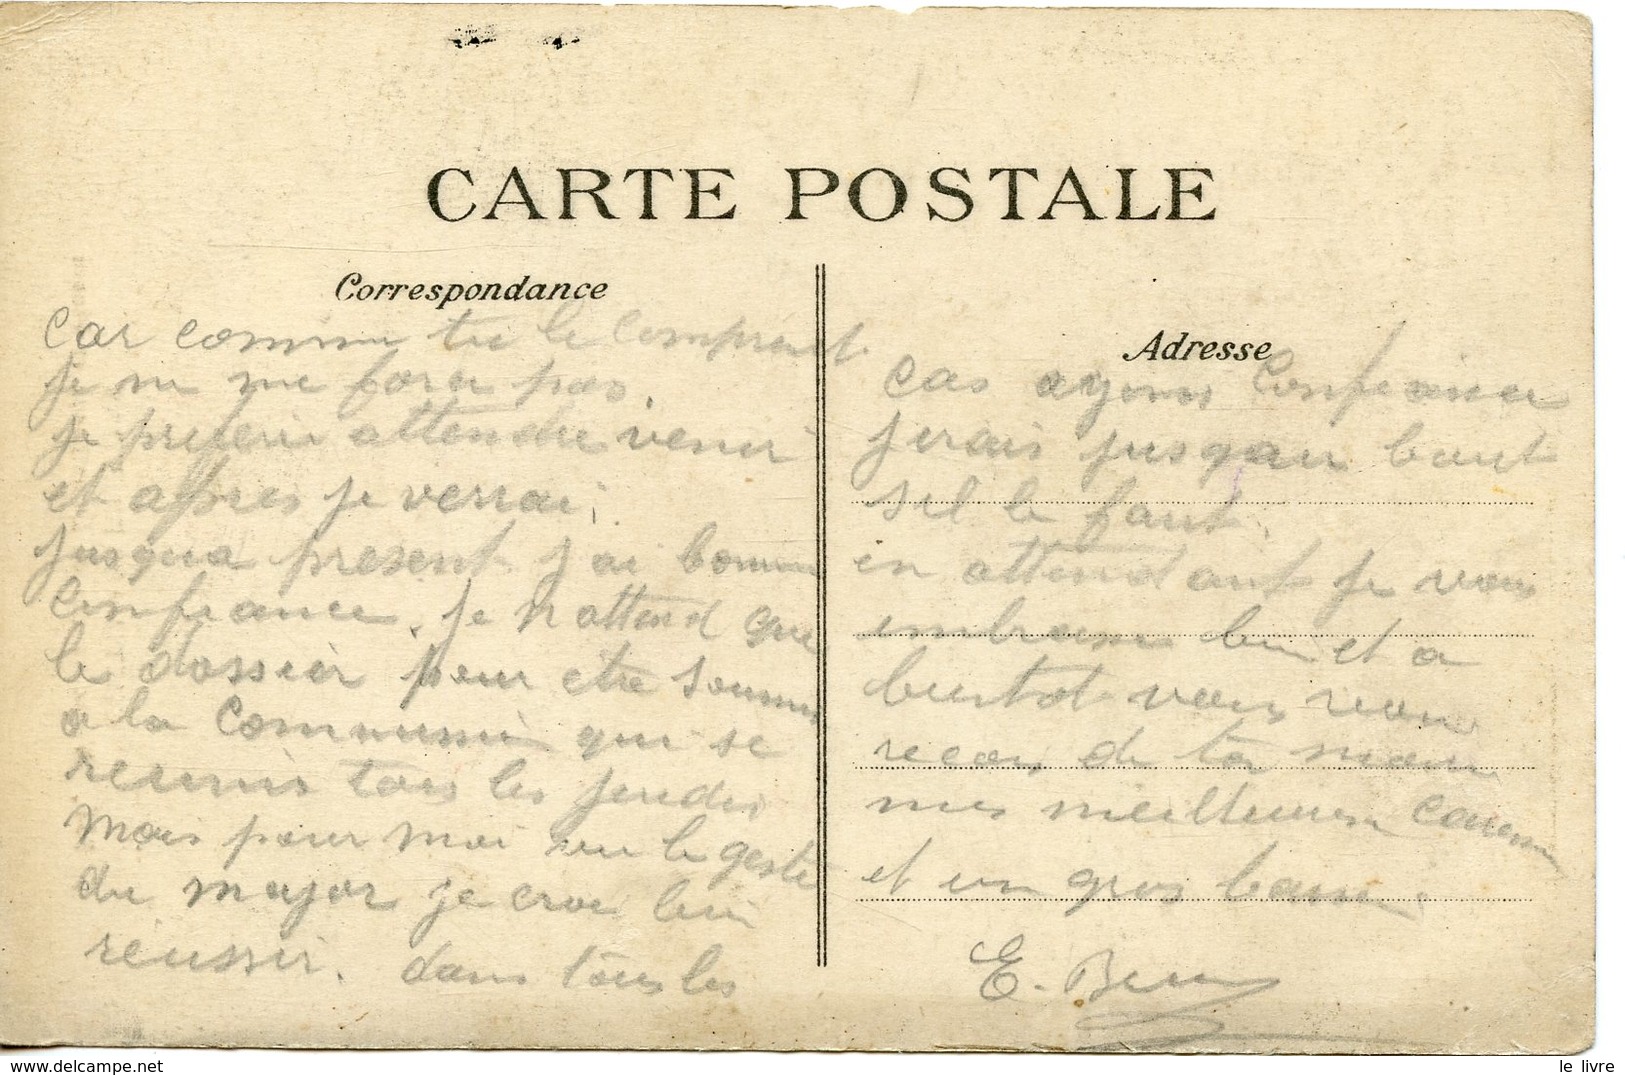 CARTE POSTALE
Correspondance
car comme tu le comprend
je ne me forse pas.
je prefere attendre venir
et apres je verrai.
jusqua present j ai bonne
confiance. je n attend que
le dossier pour etre soumis
a la Commission qui se
reunis tous les jeudis
mais pour moi vu le geste
du major je croi bien
reussir. dans tous les
Adresse
cas ayons confiance
j irais jusqau bout
sil le faut.
en attendant je vous
embrasse bien et a
bientot vous revoir
recois de ta
mes meilleures caresses
et un gros
E.
le livre
delcampe.net